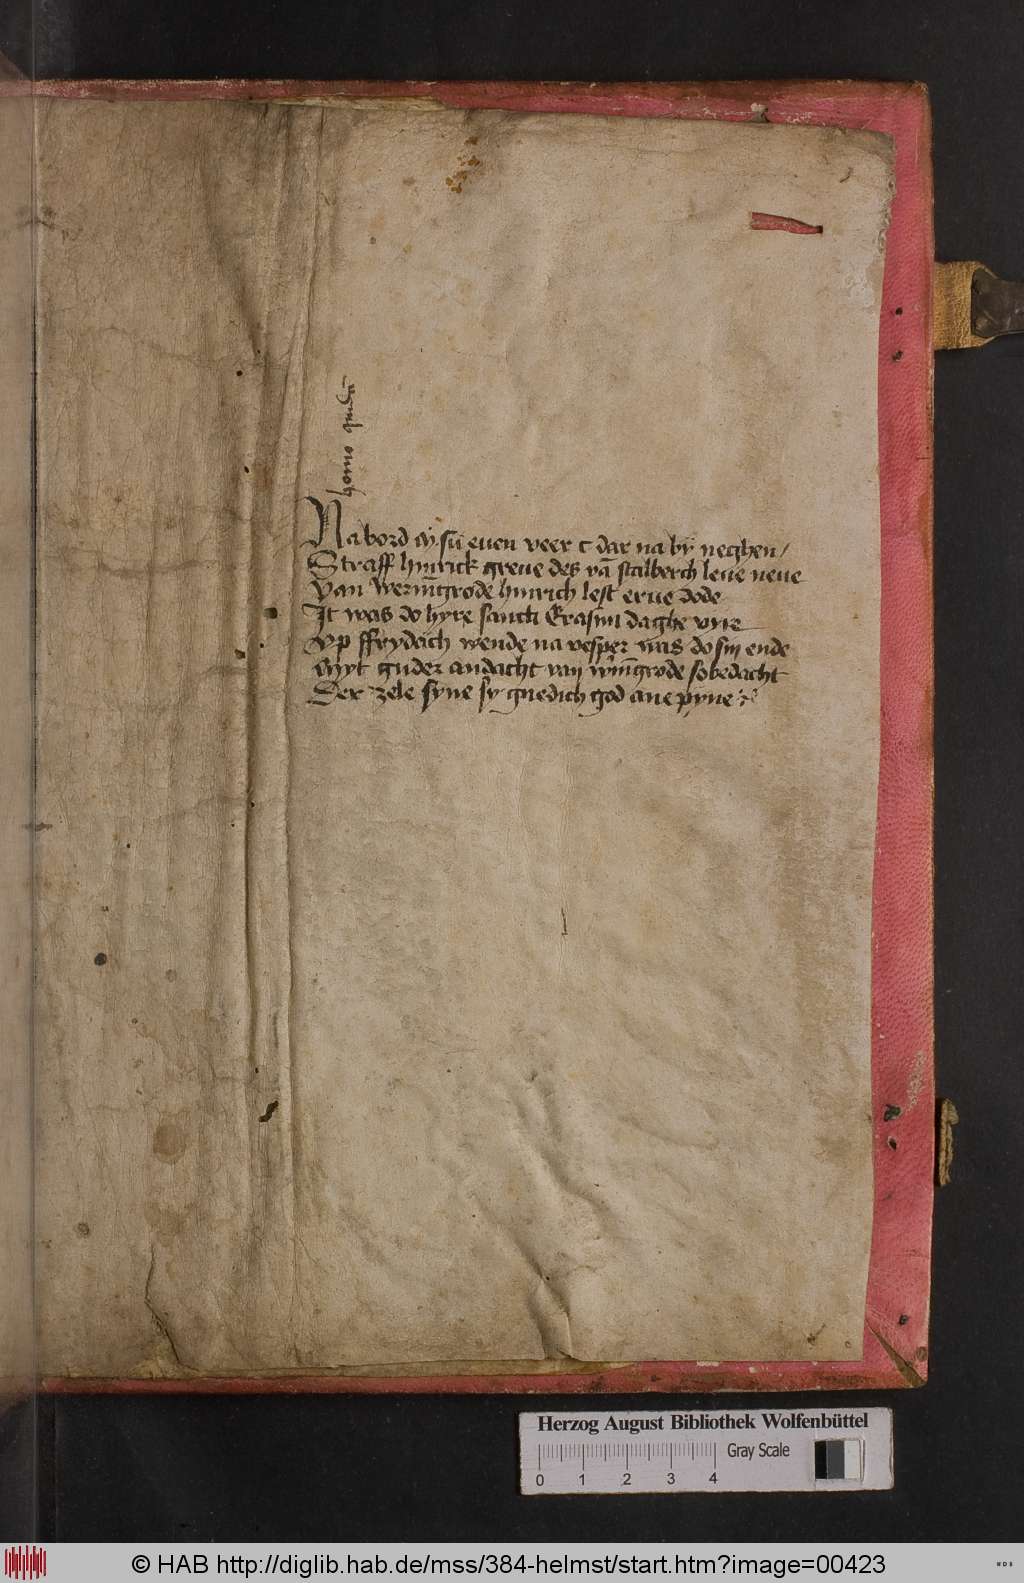 homo quidā
Na bord m sū even veer c dar na by neghen /
Straff hinrick greue des vā stalberch leue neue
Van werningrode hinrich lest erue dode
It was do hyre sancti Erasmi daghe vrie
Vp ffrydach wende na vesper was do sin ende
Myt guder andacht van w'ningrode so bedacht
Der zele syne sy gnedich god ane pyne
Herzog August Bibliothek Wolfenbüttel
Gray Scale
0 1 2 3 4
© HAB http://diglib.hab.de/mss/384-helmst/start.htm?image=00423